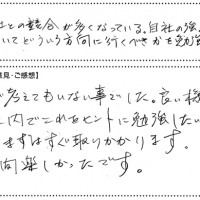 社との競合が多くなっている。自社の強
いてどういう方向に行くべきかを勉強
意見・ご感想】
で考えてもいない事でした。良い機
社内でこれをヒントに勉強したい
まずはすぐ取りかかります。
間楽しかったです。